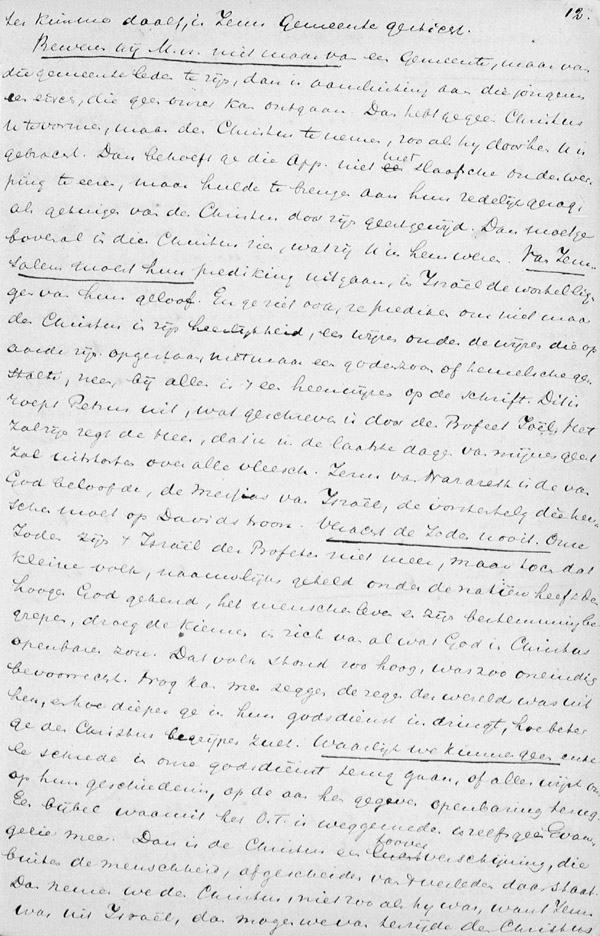 12.
der kimme daalt, is Zenu Gemeente gesticht.
Bewere wij M.H. niet maar van een Gemeente, maar van
die gemeente leden te zijn, dan is aansluiting aan die jongeren
een eisch, die geen onzer kan ontgaan. Dan hebt ge geen Christus
U te vormen, maar den Christus te nemen, zoo als hij door hen U is
gebracht. Dan behoeft ge die App. niet met slaafsche onderwer
ping te eeren, maar hulde te brengen aan hun redelijk gezag,
als getuigen van den Christus door zijn geest gewijd. Dan moet ge
bovenal in dien Christus zien, wat zij U in hem weren. Van Jeru-
salem moest hun prediking uitgaan, in Israël de worteling
gen van hun geloof. En ge ziet ook, ze prediken ons niet maar
den Christus in zijn heerlijkheid, een wijze onder de wijzen die op
aarde zijn opgestaan, niet maar een godenzoon of hemelsche ge
stalte, neen, bij allen is 't een heenwijzen op de Schrift. Dit is
roept Petrus uit, wat geschreven is door den Profeet Joël, Het
zal zijn zegt de Heer, dat ik in de laatste dagen van mijnen geest
zal uitstorten over alle vleesch. Jezus van Nazareth is de van
God beloofde, de Messias van Israël, de vorstelijke die heer-
schen moet op Davids troon. Veracht de Joden nooit. Onze
Joden zijn 't Israël der Profeten niet meer, maar toch dat
kleine volk, nauwelijks geteld onder de natiën heeft den
hoogen God gekend, het menschenleven en zijn bestemming be
grepen, droeg de kiemen in zich van al wat God in Christus
openbaren zou. Dat volk stond zoo hoog, was zoo oneindig
bevoorrecht. Nog kan men zeggen de zegen der wereld was uit
hen, en hoe dieper ge in hun godsdienst in dringt, hoe beter
ge den Christus begrijpen zult. Waarlijk we kunnen geen enke
le schrede in onze godsdienst terug gaan, of alles wijst ons
op hun geschiedenis, op de aan hen gegeven openbaring terug.
Een bijbel waaruit het O.T. is weggenomen is zelfs geen Evan-
gelie meer. Dan is de Christus een toover verschijning, die
buiten de menschheid, afgescheiden van 't verleden daar staat.
Dan nemen we den Christus, niet zoo als hij was, want Jezus
was uit Israël, dan mogen we van terzijde den Christus